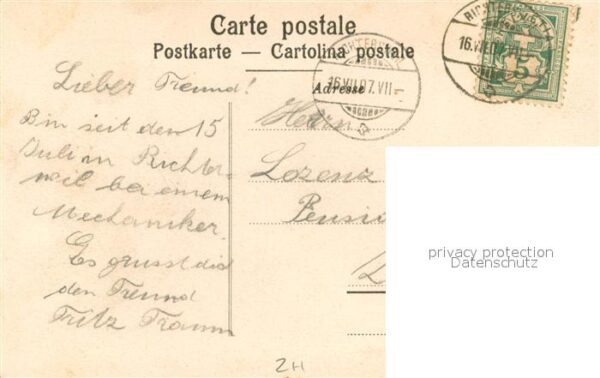 Carte postale
Postkarte — Cartolina postale
Adresse
RICHTERSWIL
16.VII.07.VII
16.VII.07.VII
5
Lieber Freund!
Bin seit dem 15
Juli in Richter-
wil bei einem
Mechaniker.
Es grusst dich
den Freund
Fritz
Herrn
Lorenz
Pensio
privacy protection
Datenschutz
ZH